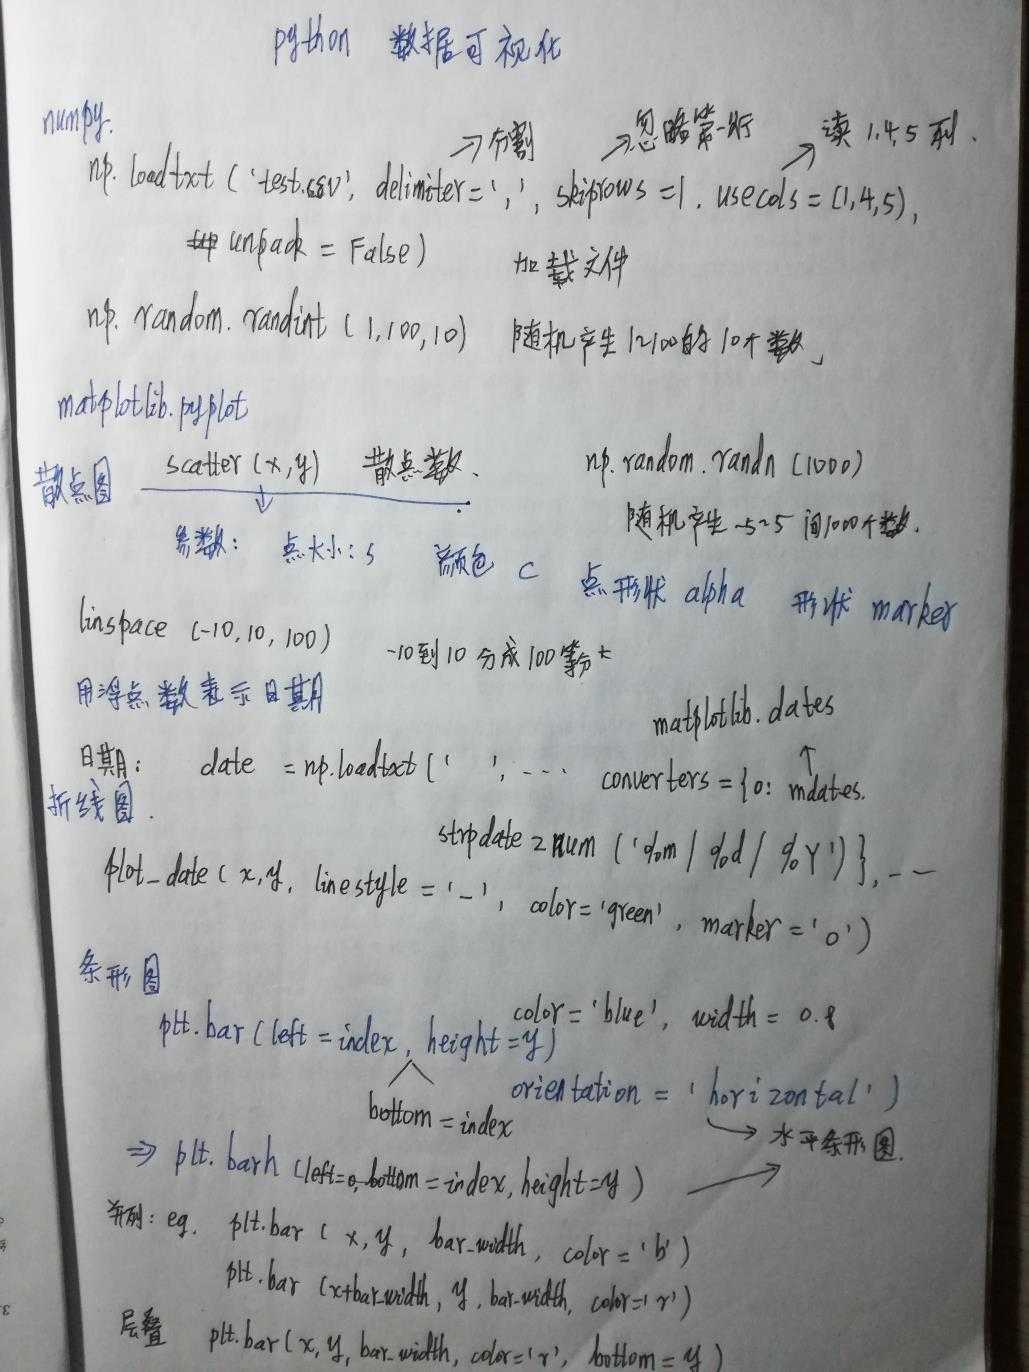 python 数据可视化
numpy.
→分割 →忽略第一行 读 1,4,5 列.
np.loadtxt ('test.csv', delimiter=',', skiprows=1, usecols=(1,4,5),
unpack = False) 加载文件
np. random. randint (1,100,10) 随机产生1~100的10个数
matplotlib.pyplot
散点图 scatter (x,y) 散点数. np.random.randn (1000)
随机产生 -5~5 间1000个数.
参数: 点大小: s 颜色 c 点形状 alpha 形状 marker
linspace (-10,10,100) -10到10分成100等分
用浮点数表示日期
matplotlib.dates
日期: date = np.loadtxt (' ', --- converters = {0: mdates.
折线图.
strpdate2num ('%m/%d/%Y')}, --
plot_date (x,y, linestyle = '-', color='green', marker='o')
条形图
plt.bar (left = index, height=y) color='blue', width = 0.8
bottom = index orientation = 'horizontal')
→ 水平条形图.
⇒ plt. barh (left=0, bottom = index, height=y)
并列: eg. plt.bar ( x, y, bar_width, color='b')
plt.bar (x+bar_width, y, bar_width, color='r')
层叠 plt.bar (x, y, bar_width, color='r', bottom = y)